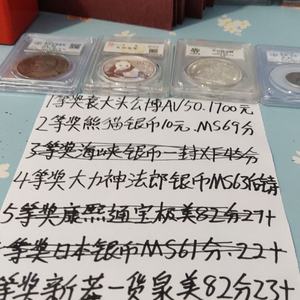 1等奖袁大头公博AU50.1700元
2等奖熊猫银币10元.MS69分
3等奖海峡银币一封XF45分
4等奖大力神法郎银币MS63
5等奖康熙通宝极美82分27+
等奖日本银币MS61分.22+
等奖新莽一货泉美82分23+